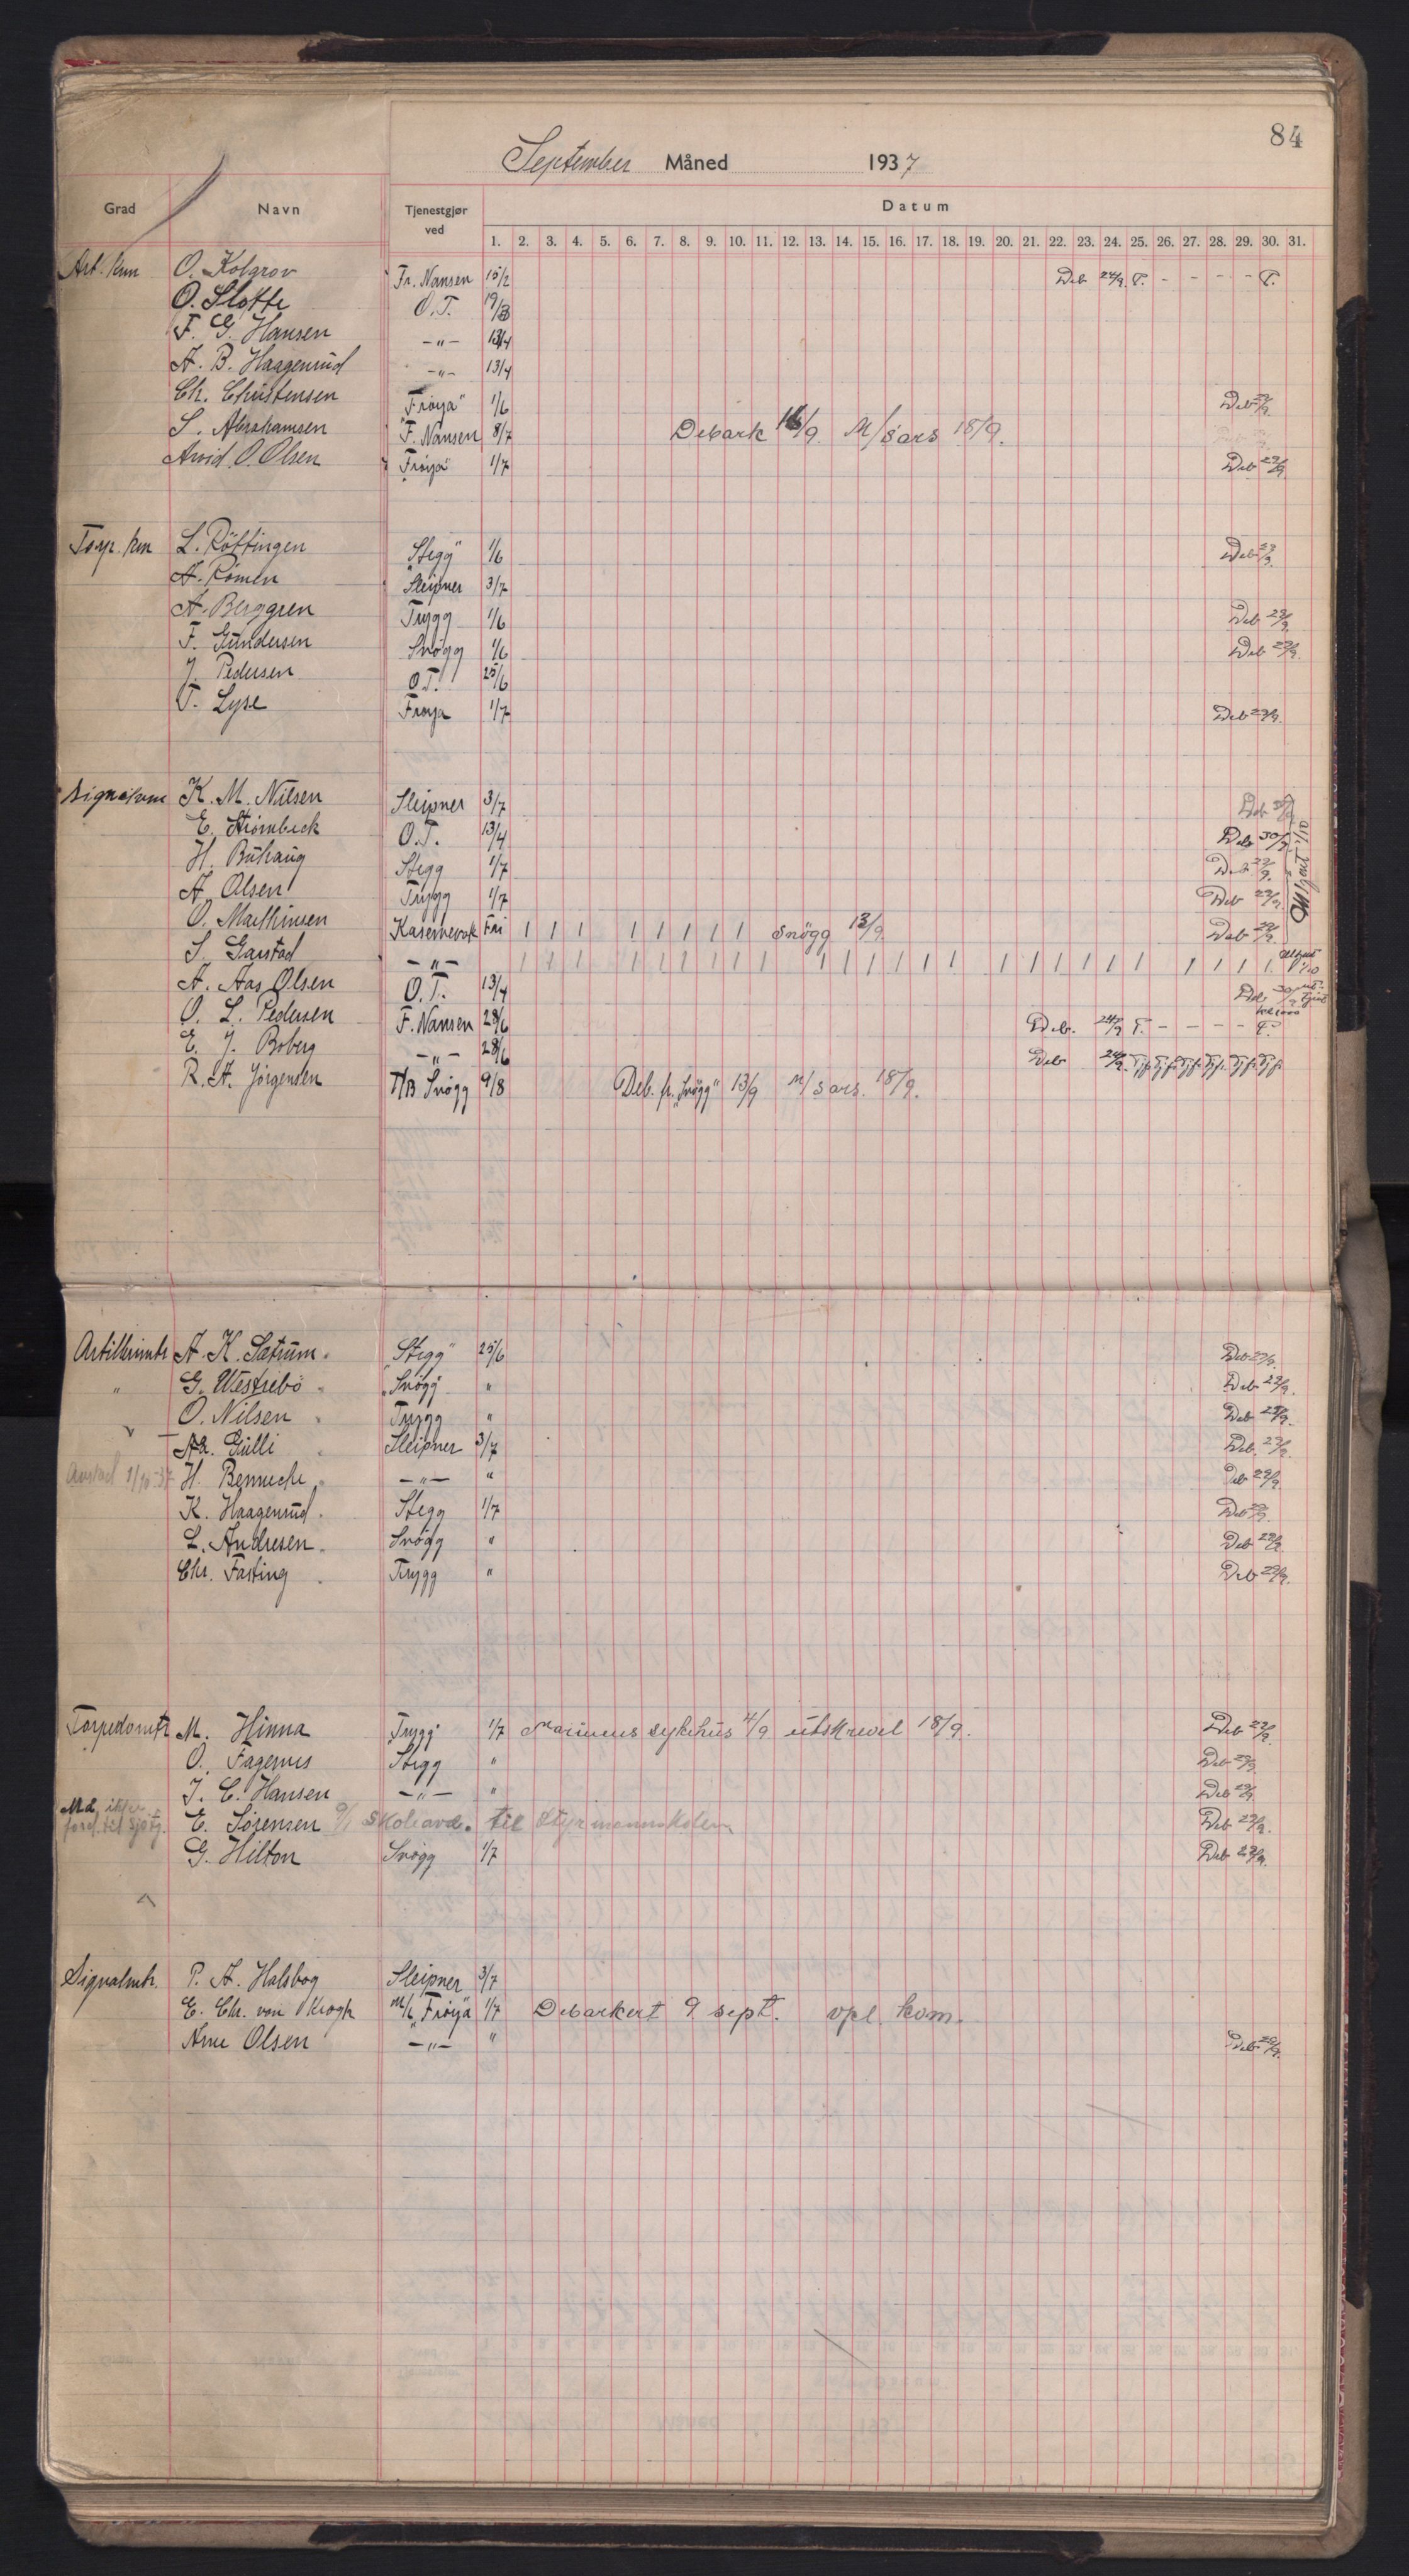 84
September Måned 1937
Grad Navn Tjenestgjør ved Datum
1. 2. 3. 4. 5. 6. 7. 8. 9. 10. 11. 12. 13. 14. 15. 16. 17. 18. 19. 20. 21. 22. 23. 24. 25. 26. 27. 28. 29. 30. 31.
Art. km O. Kolgrov Fr. Nansen 15/2 Deb 24/9. T. - - - - T.
O. Slotte O.T. 19/8
F. G. Hansen -"- 13/4
A. B. Haagenrud -"- 13/4
Ch. Christensen "Frøya" 1/6 Deb 29/9.
S. Abrahamsen "F. Nansen 8/7 Debark 16/9. M/Sars 18/9.
Arvid O. Olsen "Frøya" 1/7 Deb 29/9.
Torp. km L. Röttingen "Stegg" 1/6 Deb 29/9.
A. Römen "Sleipner 3/7
A. Berggren Trygg 1/6 Deb 29/9.
F. Gundersen Snögg 1/6 Deb 29/9.
J. Pedersen O.T. 25/6
T. Lyse Frøya 1/7 Deb 29/9.
Signalkm K. M. Nilsen Sleipner 3/7 Deb 30/9
E. Strömbeck O.T. 13/4 Deb 30/9
H. Buhaug Stegg 1/7 Deb 29/9.
A. Olsen Trygg 1/7 Deb 29/9.
O. Mathinsen Kasernevak Fri 1 1 1 1 1 1 1 1 Snögg 13/9. Deb 29/9.
S. Garstad -"- 1 1 1 1 1 1 1 1 1 1 1 1 1 1 1 1 1 1 1 1 1 1 1 1 1 1 1/10
A. Aas Olsen O.T. 13/4 Deb 30/9
O. L. Pedersen F. Nansen 28/6 Deb. 24/9 T. - - - - T.
E. J. Boberg -"- 28/6 Deb 24/9. Tjf. Tjf. Tjf. Tjf. Tjf. Tjf.
R. A. Jörgensen T/B Snögg 9/8 Deb. fr. "Snögg" 13/9 M/Sars. 18/9.
Artillerimtr A. K. Sætrum. "Stegg" 25/6 Deb 29/9.
" G. Westrebö "Snögg" " Deb 29/9.
" O. Nilsen Trygg " Deb 29/9.
Aa. Gulli Sleipner 3/7 Deb. 29/9.
1/10-37 H. Benneche -"- " Deb 29/9.
K. Haagenrud. Stegg 1/7 Deb 29/9.
L. Andresen. Snögg " Deb 29/9.
Chr. Fasting Trygg " Deb 29/9.
Torpedomtr M. Hinna Trygg 1/7 Marinens sykehus 4/9 utskrevet 18/9. Deb 29/9.
O. Fagernes Stegg " Deb 29/9.
J. C. Hansen -"- " Deb 29/9.
E. Sörensen 9/1 Skoleavd. til Styrmannskolen Deb 29/9.
G. Hilton Snögg 1/7 Deb 29/9.
Signalmtr. P. A. Halsbog Sleipner 3/7
E. Chr. von Krogh M/L "Frøya 1/7 Debarkert 9 sept. vpl. kom.
Arne Olsen -"- " Deb 29/9.